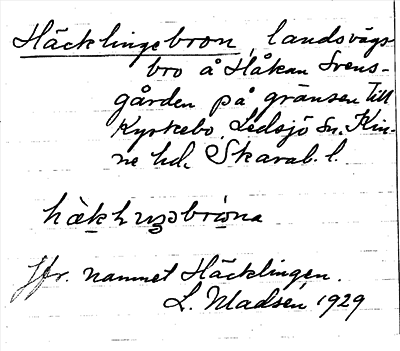 Häcklingebron, landsvägs-
bro å Håkan Svens-
gården på gränsen till
Kyrkebo, Ledsjö Sn. Kin-
ne hd. Skarab. l.
Jfr. namnet Häcklingen.
L. Madsén, 1929